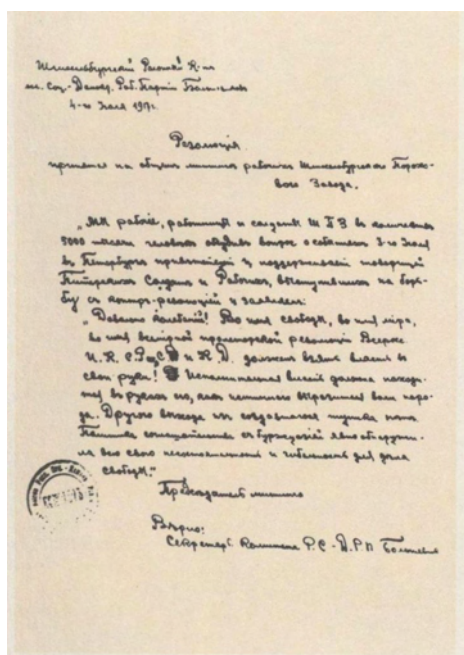 Шлиссельбургский Район К-т
Соц.-Демокр. Раб. Партии Большевиков
4-го Июля 1917г.
Резолюція
принятая на общем митинге рабочих Шлиссельбургского Порохо-
вого Завода.
„Мы рабочіе, работницы и солдаты Ш П З в количестве
5000 тысяч человек обсудив вопрос о событиях 3-го Июля
в Петербурге приветствуем и поддерживаем товарищей
Питерских Солдат и Рабочих, выступивших на борь-
бу с контр-революціей и заявляем:
„Довольно колебаній! Во имя свободы, во имя мира,
во имя всемірной пролетарской революции Всеросс.
И. К. С Р и С Д и К Д. должен взять власть в
свои руки! Исполнительная власть должна находи-
в руках его, как истинного выразителя воли наро-
да. Другого выхода из создавшегося тупика нет.
Политика соглашательства с буржуазией явно обнаружи-
ла всю свою несостоятельность и гибельность для дела
свободы."
Председатель митинга
Върно:
Секретарь Комитета Р. С.-Д. Р. П. Большев